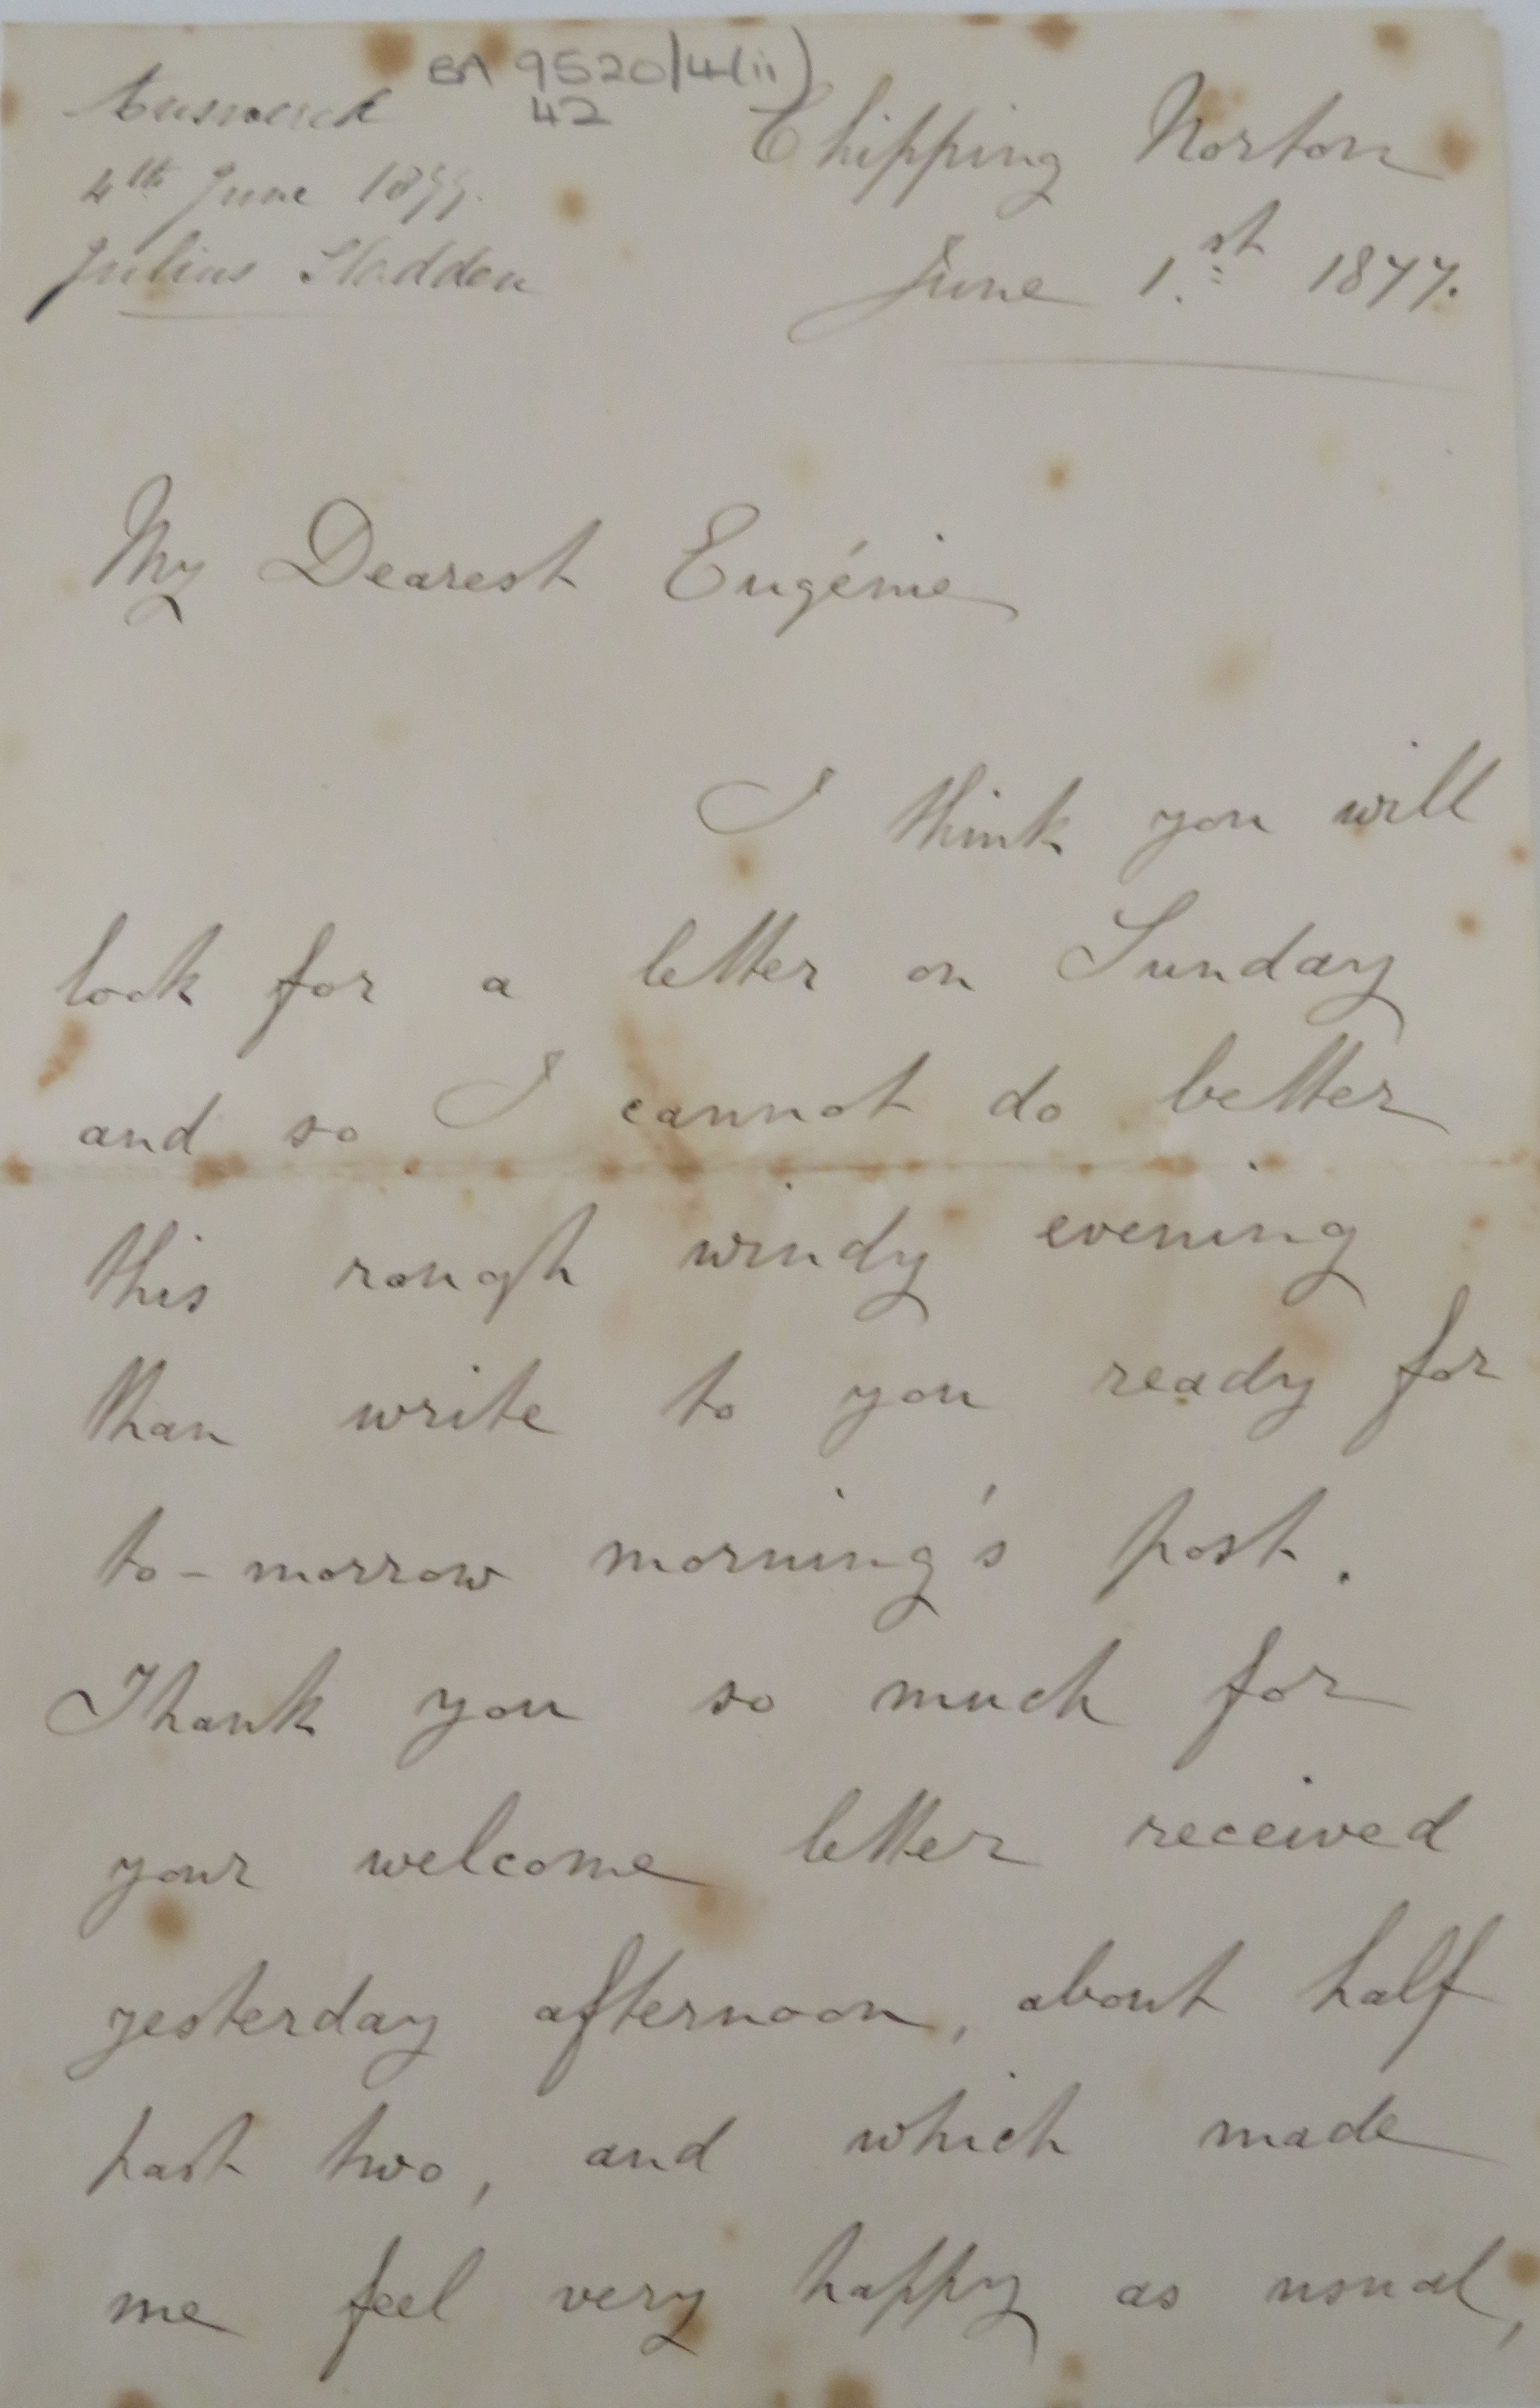 BA 9520/4(ii)
42
Answered
4th June 1877.
Julius Sladden
Chipping Norton
June 1st 1877.
My Dearest Eugénie
I think you will
look for a letter on Sunday
and so I cannot do better
this rough windy evening
than write to you ready for
to-morrow morning's post.
Thank you so much for
your welcome letter received
yesterday afternoon, about half
past two, and which made
me feel very happy as usual,